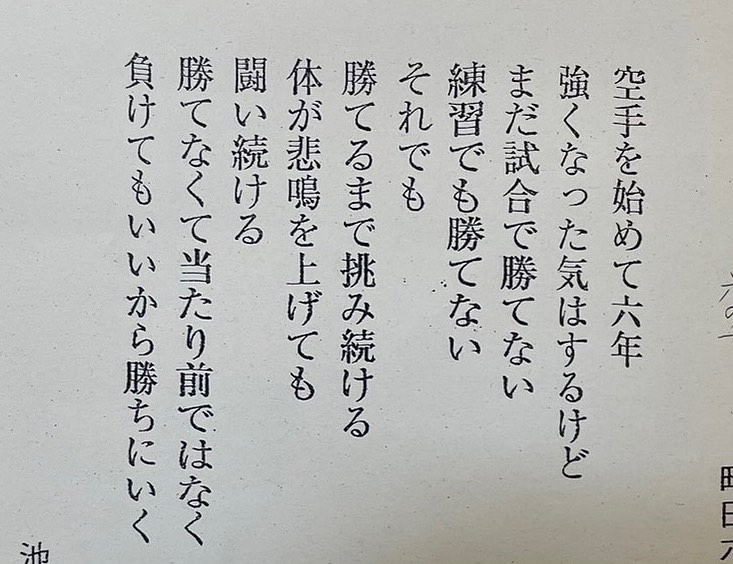 空手を始めて六年
強くなった気はするけど
まだ試合で勝てない
練習でも勝てない
それでも
勝てるまで挑み続ける
体が悲鳴を上げても
闘い続ける
勝てなくて当たり前ではなく
負けてもいいから勝ちにいく
池